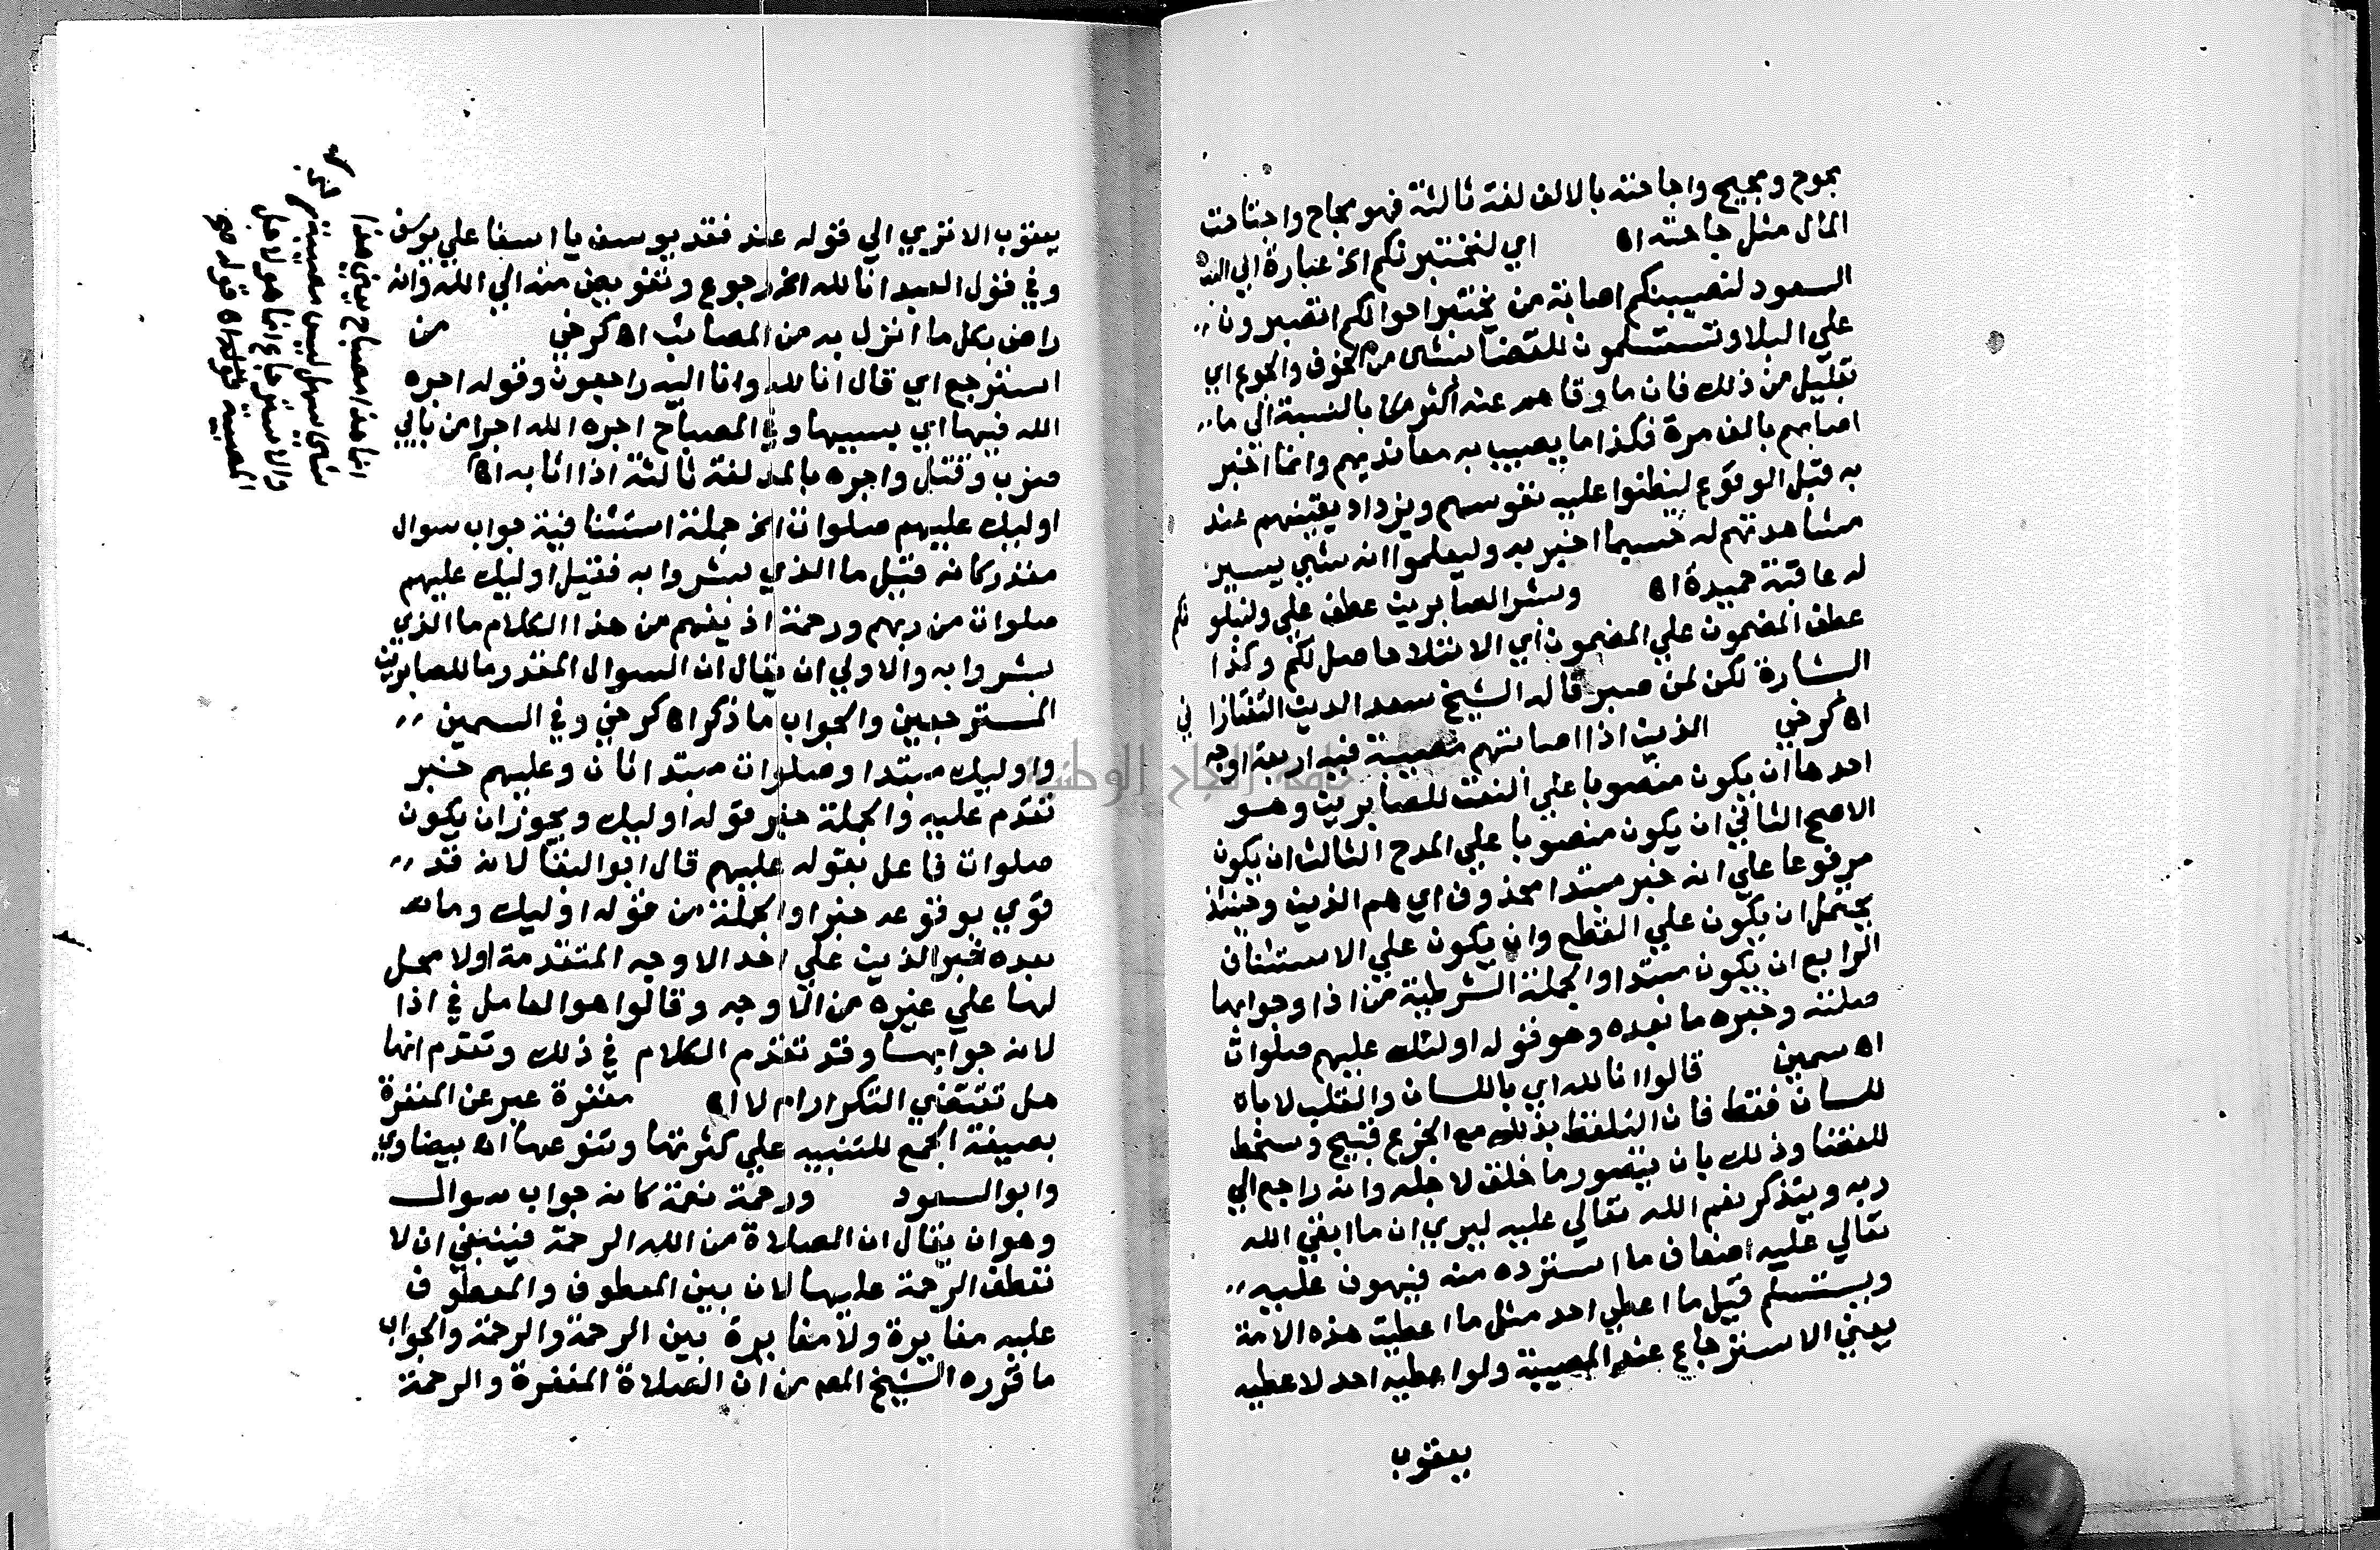 يجوح ويجيح واجاحته بالالف لغة ثالثة فهو مجاح واجتاحت
المال مثل جاحته اه اي لنختبرنكم الخ عبارة ابي
السعود لنصيبنكم اصابة من يختبر احوالكم اتصبرون
علي البلا وتستسلمون للقضا بشئ من الخوف والجوع اي
بقليل من ذلك فان ما وقاهم عنه اكثر بالنسبة الي ما
اصابهم بالف مرة فكذا ما يصيب به معانديهم وانما اخبر
به قبل الوقوع ليوطنوا عليه نفوسهم ويزداد يقينهم عند
مشاهدتهم له حسبما اخبر به وليعلموا انه شي يسير
له عاقبة حميدة اه وبشر الصابرين عطف علي ولنبلونكم
عطف المضمون علي المضمون اي الابتلا حاصل لكم وكذا
البشارة لكن لمن صبر قاله الشيخ سعد الدين التفتازاني
اه كرخي الذين اذا اصابتهم مصيبة فيه اربعة اوجه
احدها ان يكون منصوبا علي النعت للصابرين وهو
الاصح الثاني ان يكون منصوبا علي المدح الثالث ان يكون
مرفوعا علي انه خبر مبتدا محذوف اي هم الذين وحينئذ
يحتمل ان يكون علي القطع وان يكون علي الاستئناف
الرابع ان يكون مبتدا والجملة الشرطية من اذا وجوابها
صلته وخبره ما بعده وهو قوله اولئك عليهم صلوات
اه سمين قالوا انا لله اي باللسان والقلب لا
للسان فقط فان التلفظ بذلك مع الجزع قبيح وسخط
للقضا وذلك بان يتصور ما خلق لاجله وانه راجع الي
ربه ويتذكر نعم الله تعالي عليه ليري ان ما ابقي الله
تعالي عليه اضعاف ما استرده منه فيهون عليه
ويستسلم قيل ما اعطي احد مثل ما اعطيت هذه الامة
يعني الاسترجاع عند المصيبة ولو اعطيه احد لاعطيه
يعقوب
يعقوب الا تري الي قوله عند فقد يوسف يا اسفا علي يوسف
وفي قول العبد انا لله الخ رجوع وتفويض منه الي الله وانه
راض بكل ما انزل به من المصائب اه كرخي من
استرجع اي قال انا لله وانا اليه راجعون وقوله اجره
الله فيها اي بسببها وفي المصباح اجره الله اجرا من بابي
ضرب وقتل واجره بالمد لغة ثالثة اذا اثابه اه
اوليك عليهم صلوات الخ جملة استئنافية جواب سوال
مقدر كانه قيل ما الذي بشروا به فقيل اوليك عليهم
صلوات من ربهم ورحمة اذ يفهم من هذا الكلام ما الذي
بشروا به والاولي ان يقال ان السوال المقدر ما للصابرين
المسترجعين والجواب ما ذكر اه كرخي وفي السمين
واوليك مبتدا وصلوات مبتدا ثان وعليهم خبر
تقدم عليه والجملة خبر قوله اوليك ويجوز ان يكون
صلوات فاعل بقوله عليهم قال ابو البقا لانه قد
قوي بوقوعه خبرا والجملة من قوله اوليك وما
بعده خبر الذين علي احد الاوجه المتقدمة او لا محل
لها علي غيره من الاوجه وقالوا هو العامل في اذا
لانه جوابها وقد تقدم الكلام في ذلك وتقدم انها
هل تقتضي التكرار ام لا اه مغفرة عبر عن المغفرة
بصيغة الجمع للتنبيه علي كثرتها وتنوعها اه بيضاوي
وابو السعود ورحمة نعمة كانه جواب سوال
وهو ان يقال ان الصلاة من الله الرحمة فينبغي ان لا
تعطف الرحمة عليها لان بين المعطوف والمعطوف
عليه مغايرة ولا مغايرة بين الرحمة والرحمة والجواب
ما قرره الشيخ المص من ان الصلاة المغفرة والرحمة
انما هذا مصباح يعني هذا
شئ سهل ليس مصيبة
والاسترجاع انما هو لاجل
المصيبة
جامعة النجاح الوطنية